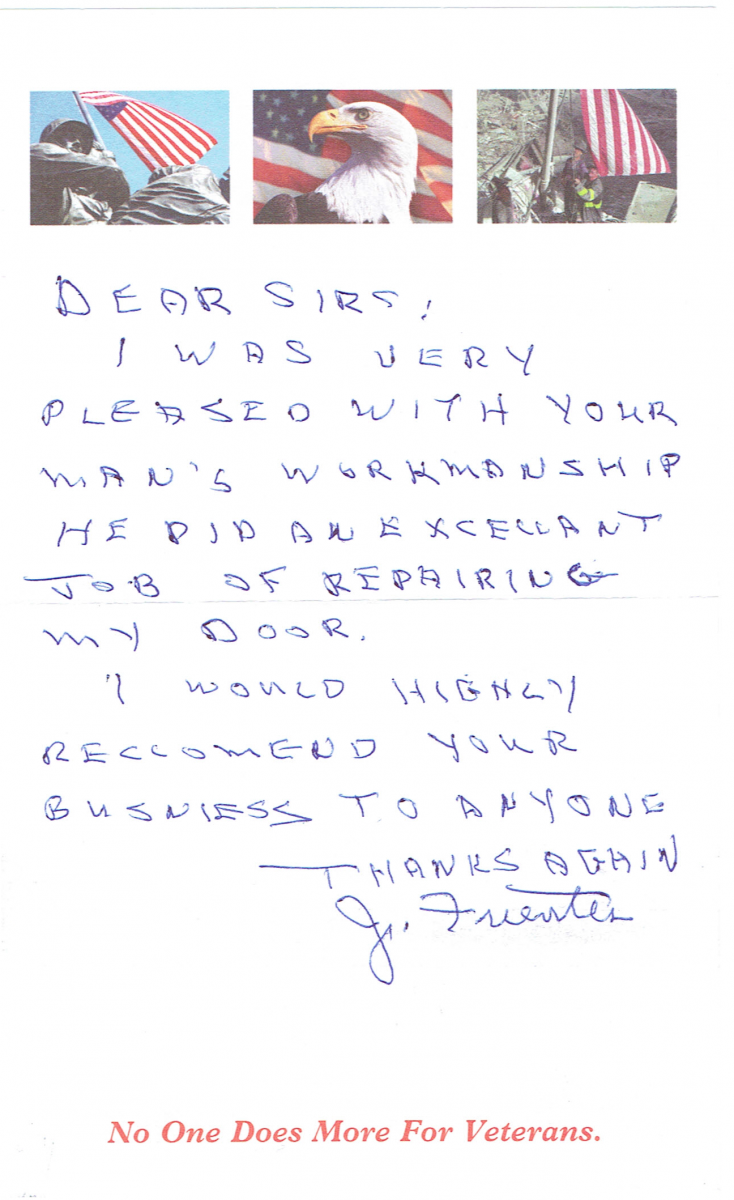 DEAR SIRS,
I WAS VERY
PLEASED WITH YOUR
MAN'S WORKMANSHIP
HE DID AN EXCELLANT
JOB OF REPAIRING
MY DOOR.
I WOULD HIGHLY
RECCOMEND YOUR
BUSNIESS TO ANYONE
THANKS AGAIN
J. Fuentes
No One Does More For Veterans.